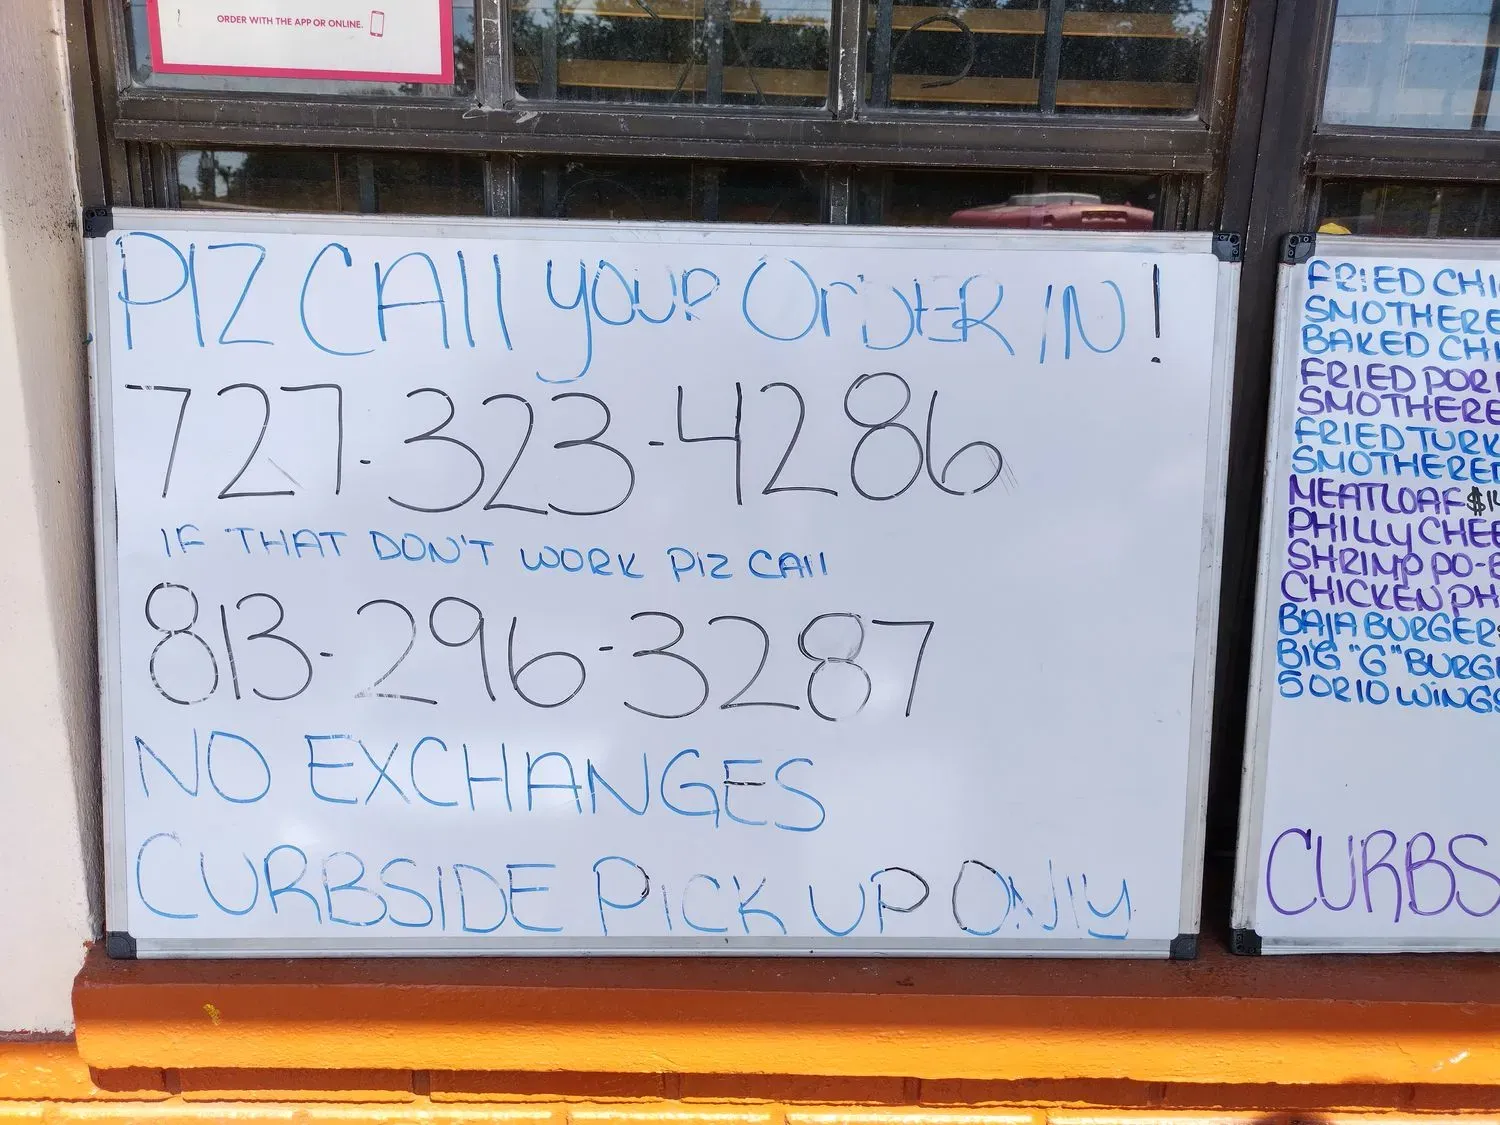 ORDER WITH THE APP OR ONLINE.
PIZ CAll yOUR OrDER IN!
727-323-4286
IF THAT DON'T WORK PIZ CAll
813-296-3287
NO EXCHANGES
CURBSIDE PiCK UP ONly
FRIED CHI
SMOTHERE
BAKED CHI
FRIED POR
SMOTHERE
FRIED TURK
SMOTHERED
MEATLOAF $14
PHILLY CHEE
SHRIMP PO-B
CHICKEN PH
BAJA BURGERS
BIG "G" BURGE
5 OR 10 WiNGS
CURBS